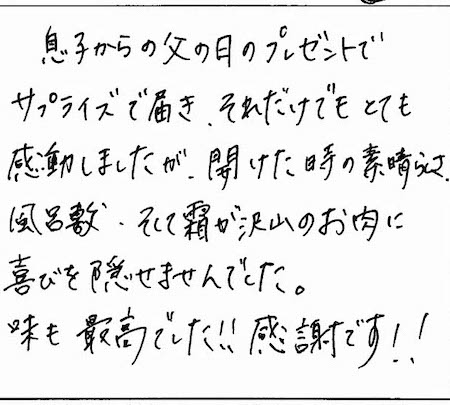 息子からの父の日のプレゼントで
サプライズで届き、それだけでもとても
感動しましたが、開けた時の素晴らしさ、
風呂敷、そして霜が沢山のお肉に
喜びを隠せませんでした。
味も最高でした!! 感謝です!!